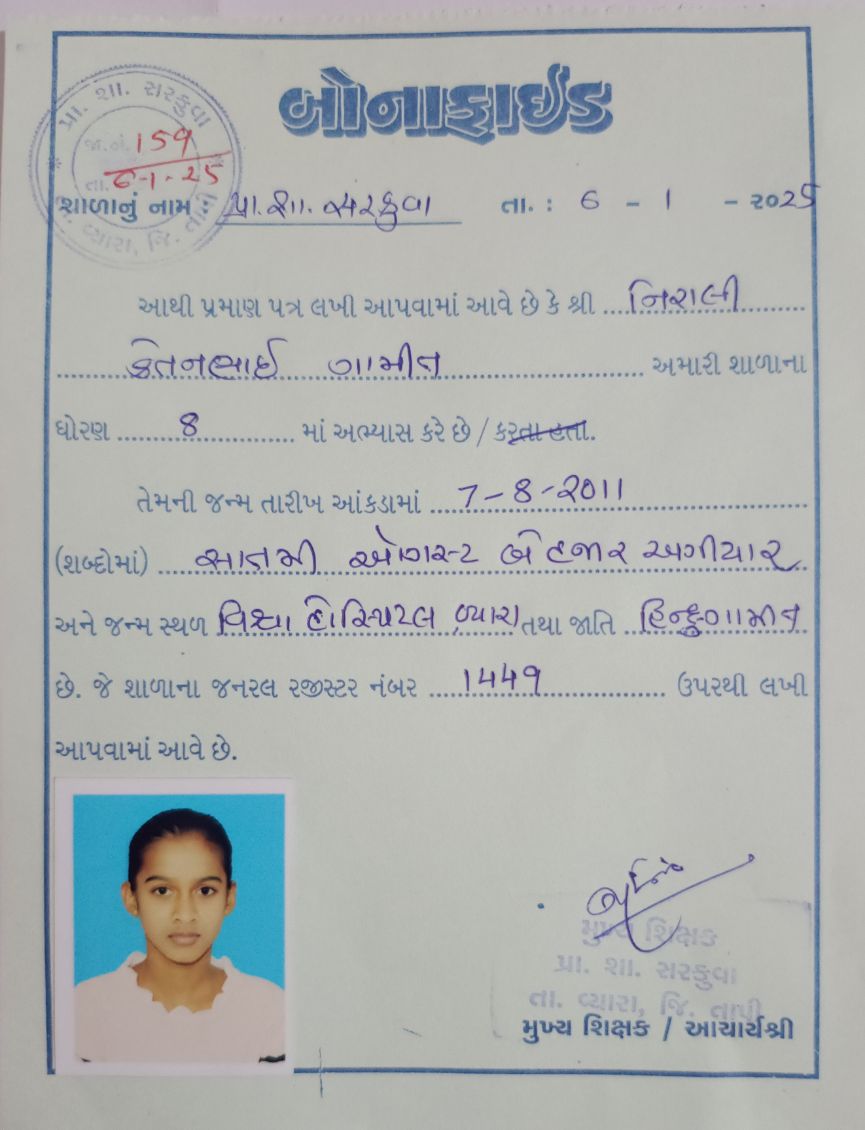 બોનાફાઈડ
પ્રા. શા. સરકુવા
જા.નં. 159
તા. 6-1-25
તા. વ્યારા, જિ. તાપી
શાળાનું નામ પ્રા.શા. સરકુવા તા. : 6 - 1 - ૨૦25
આથી પ્રમાણ પત્ર લખી આપવામાં આવે છે કે શ્રી નિરાલી
કેતનભાઈ ગામીત અમારી શાળાના
ધોરણ 8 માં અભ્યાસ કરે છે / કરતા હતા.
તેમની જન્મ તારીખ આંકડામાં 7-8-2011
(શબ્દોમાં) સાતમી ઓગસ્ટ બે હજાર અગીયાર
અને જન્મ સ્થળ હોસ્પિટલ વ્યારા તથા જાતિ હિન્દુ ગામીત
છે. જે શાળાના જનરલ રજીસ્ટર નંબર 1449 ઉપરથી લખી
આપવામાં આવે છે.
મુખ્ય શિક્ષક
પ્રા. શા. સરકુવા
તા. વ્યારા, જિ. તાપી
મુખ્ય શિક્ષક / આચાર્યશ્રી